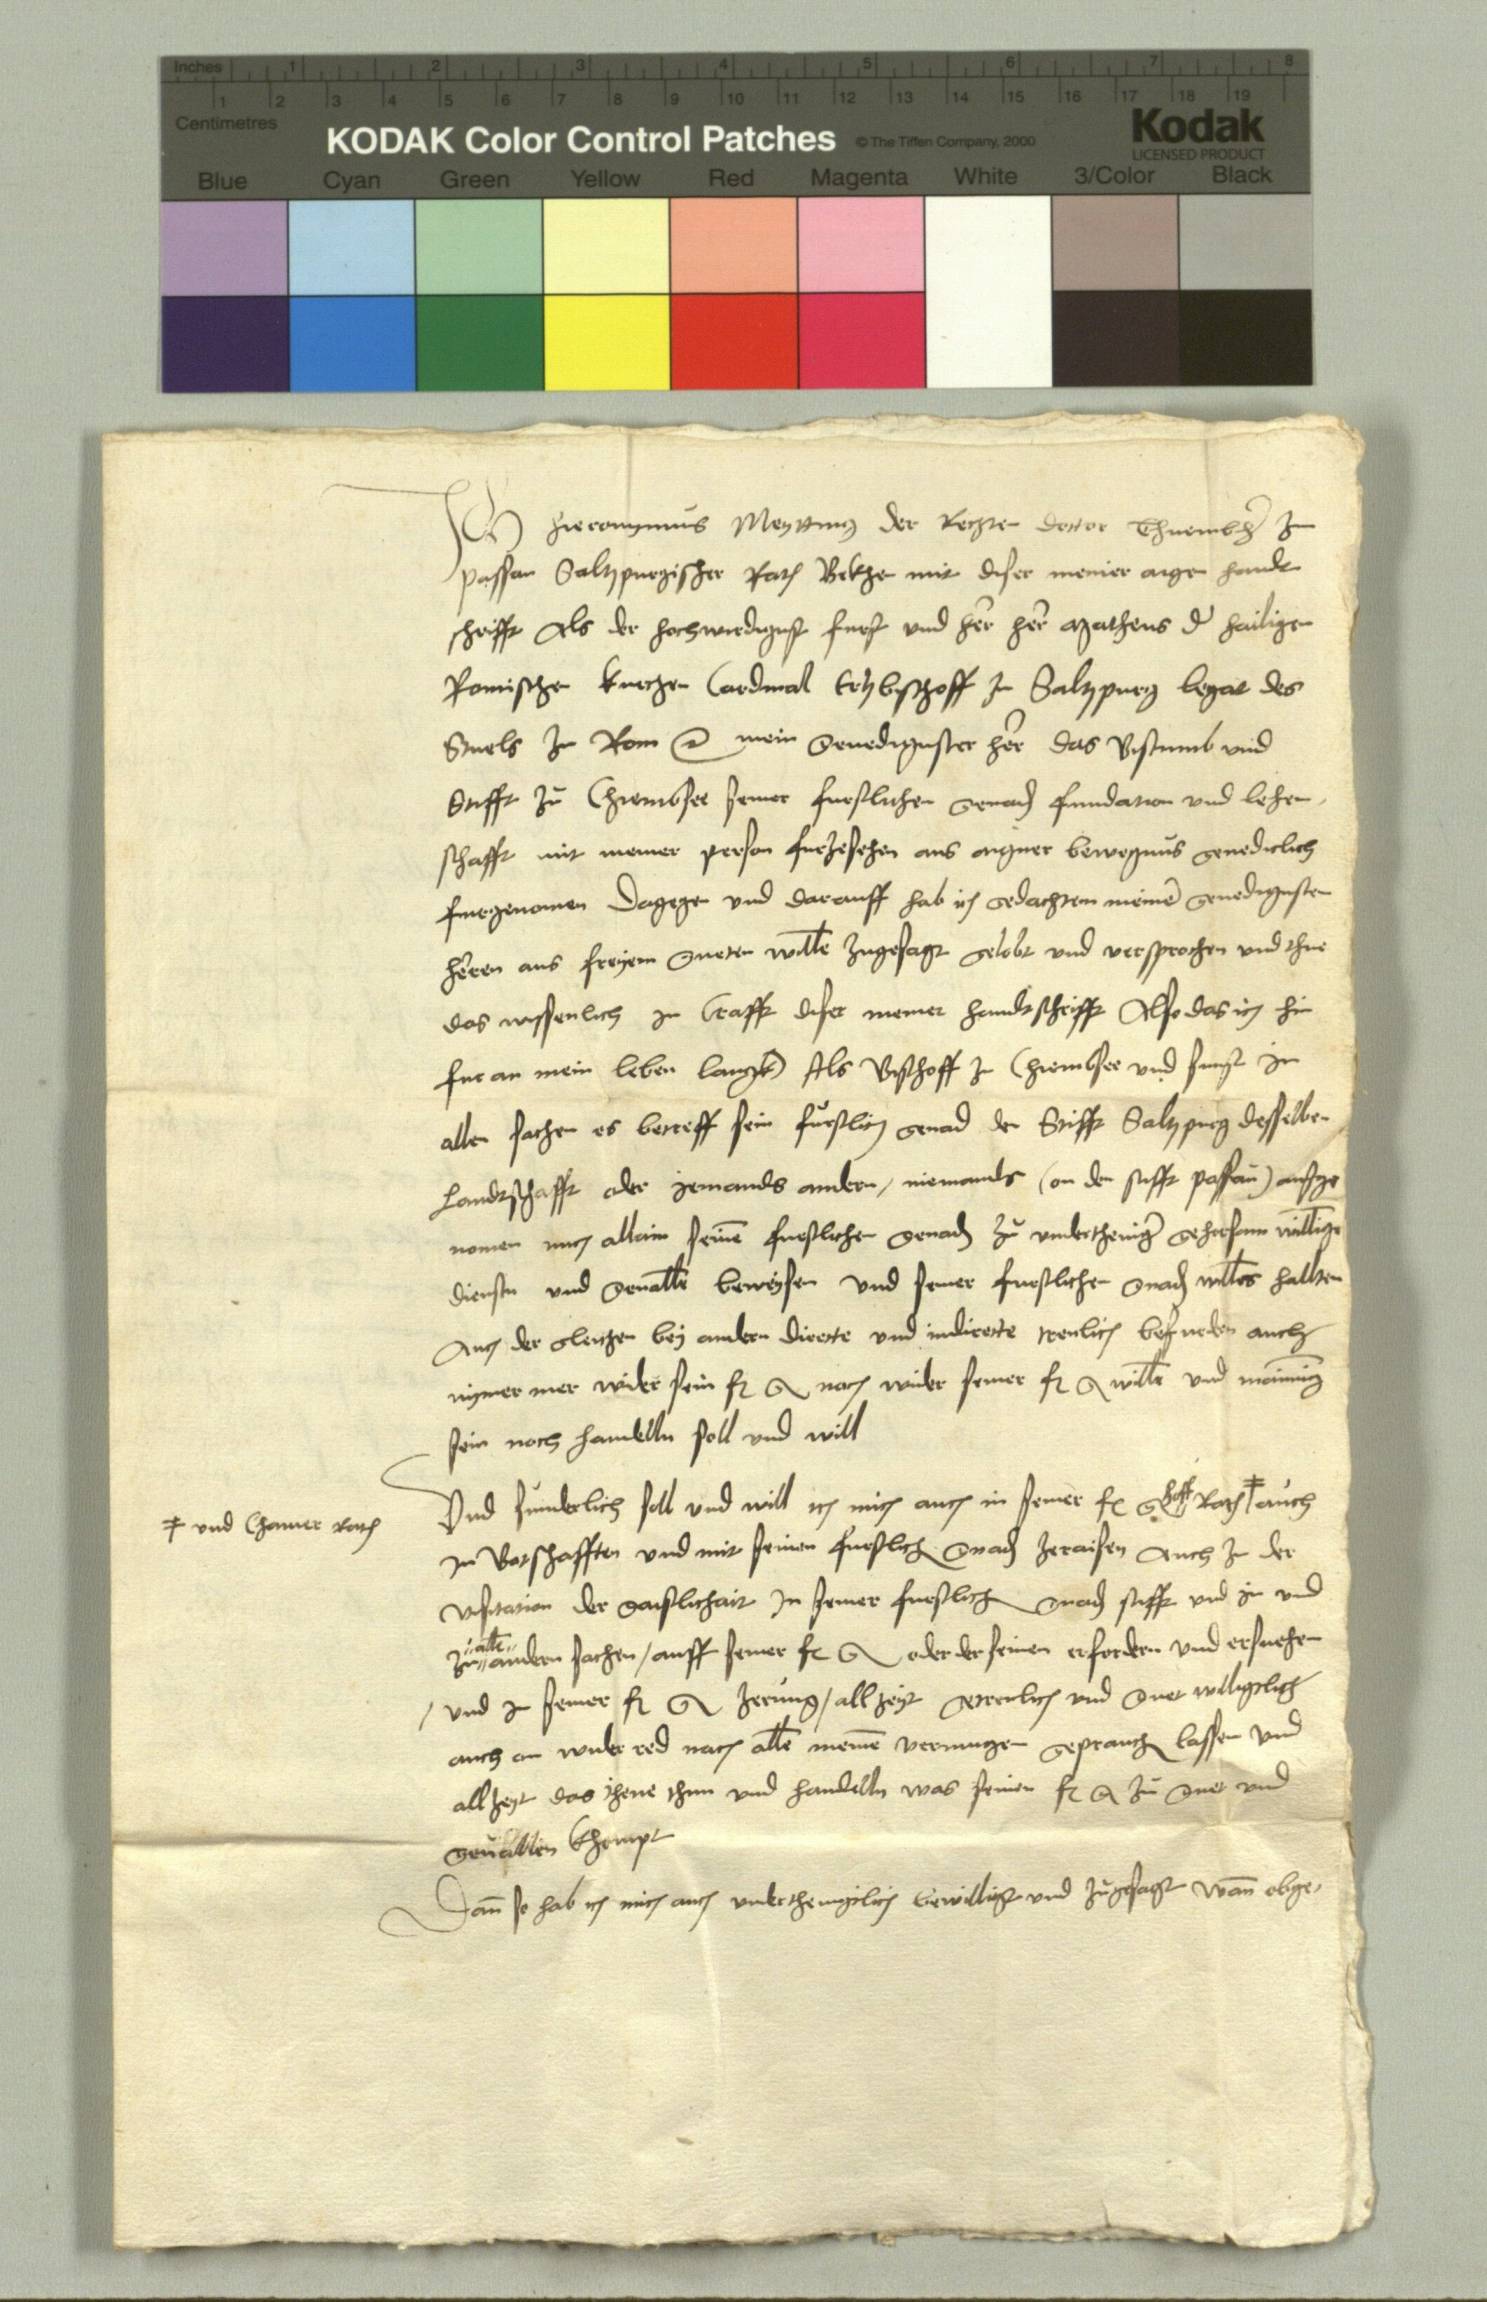 Inches 1 2 3 4 5 6 7 8
1 2 3 4 5 6 7 8 9 10 11 12 13 14 15 16 17 18 19
Centimetres
KODAK Color Control Patches © The Tiffen Company, 2000 Kodak
LICENSED PRODUCT
Blue Cyan Green Yellow Red Magenta White 3/Color Black
Ich Hieronymus Meytting der Rechten doctor Thuembher Zu
passau Saltzpurgischer Rath Bekhen mit diser meiner aigen handt
schrifft Als der hochwirdigist furst und her her Matheus d hailigen
Romischen kirchen Cardinal Ertzbischoff zu Saltzpurg legat des
Stuels zu Rom mein genedigister her das Bistumb und
Stifft zu Chiembsee seiner furstlichen genad fundation und lehen,
schafft mit meiner person furzesehen aus aigner bewegnus genedicklich
furgenomen Dagegen und darauff hab ich gedachtem meinem genedigisten
herren aus freyem gueten willen zugesagt gelobt und versprochen und thue
das wissenlich in Crafft diser meiner handtschrifft Also das ich hin
fur an mein leben lang Als Bischoff zu Chiembsee und sunst in
allen sachen es betreff sein furstlich genad den Stifft Saltzpurg desselben
Landtschafft oder yemands andern / niemands (on den stifft passau) ausge
nomen mich allain seinen furstlichen genad zu undertheniger gehorsam willigen
diensten und geuallen beweysen und seiner furstlichen gnad willens hallten
Auch der gleichen bey andern directe und indirecte treulich befurdern auch
nymer mer wider sein fr G noch wider seiner fr G willen und mainung
sein noch handelln soll und will
Und sunderlich soll und will ich mich auch in seiner fr G hoff Rath ǂ auch
ǂ und Chamer Rath
in Botschafften und mit seinen furstlich gnad zeraisen Auch zu der
visitation der gaistlichait In seiner furstlich gnad stifft und in und
zu allen andern sachen / auff seiner fr G oder der seinen erfordern und ersuechen
/ und in seiner fr G zerung / allzeyt getreulich und guet williglich
auch on wider red nach allem meinem vermugen geprauchen lassen und
allzeyt das ihene thun und handelln was seinen fr G zu guet und
geuallen khompt
Dann so hab ich mich auch underthenigklich bewilligt und zugesagt wann obge,